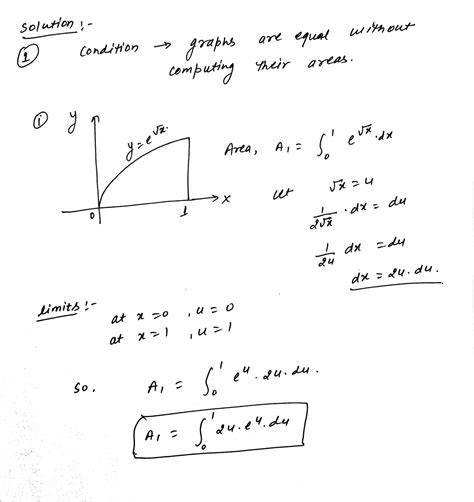 Solution :-
① condition → graphs are equal without
computing their areas.
① y
y = e^√x.
0 1 x
Area, A₁ = ∫₀¹ e^√x . dx
let √x = u
1/2√x . dx = du
1/2u dx = du
dx = 2u. du.
limits :-
at x = 0 , u = 0
at x = 1 , u = 1
so. A₁ = ∫₀¹ e^u . 2u. du.
A₁ = ∫₀¹ 2u. e^u. du